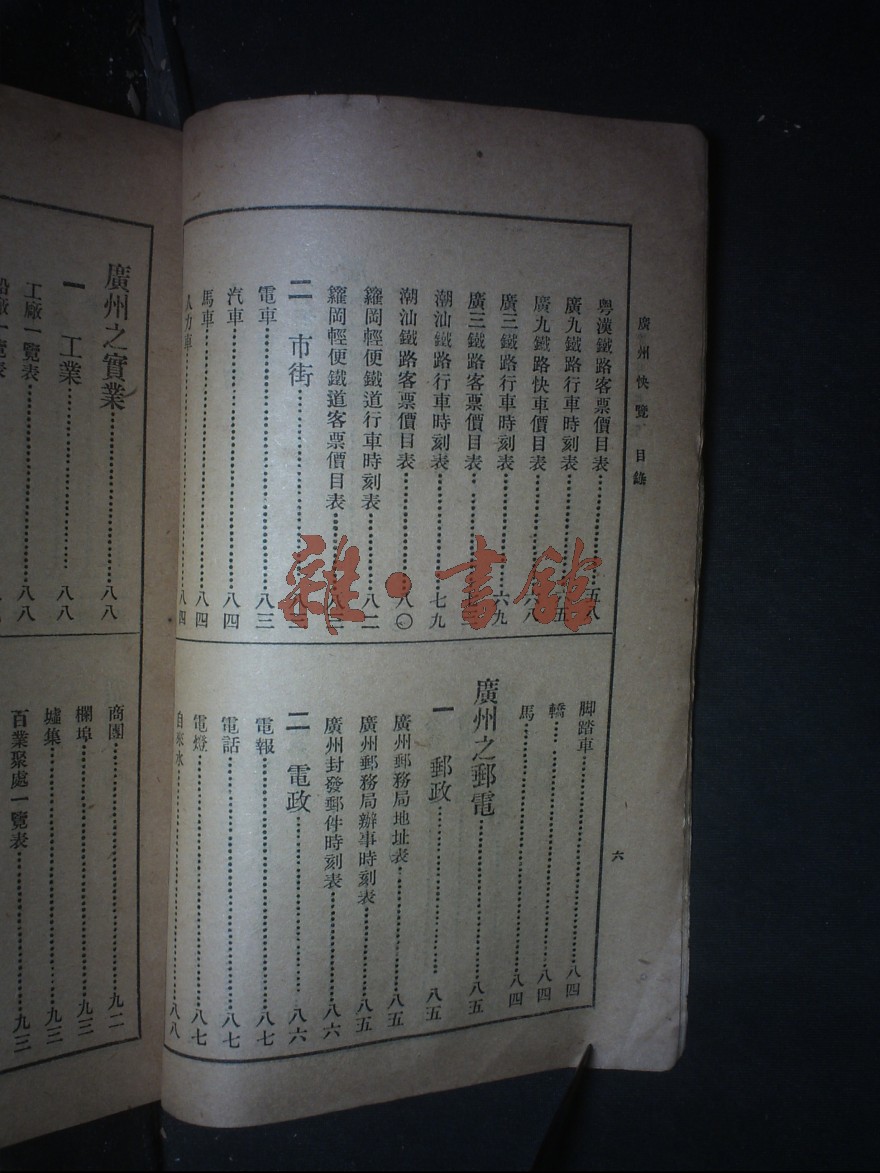 廣州快覽 目錄
六
粤漢鐵路客票價目表 五八
廣九鐵路行車時刻表
廣九鐵路快車價目表
廣三鐵路行車時刻表 六九
廣三鐵路客票價目表
潮汕鐵路行車時刻表 七九
潮汕鐵路客票價目表 八〇
籮岡輕便鐵道行車時刻表 八二
籮岡輕便鐵道客票價目表
二 市街
電車 八三
汽車 八四
馬車 八四
人力車 八四
脚踏車 八四
轎 八四
馬 八四
廣州之郵電 八五
一 郵政 八五
廣州郵務局地址表 八五
廣州郵務局辦事時刻表 八五
廣州封發郵件時刻表 八六
二 電政 八六
電報 八七
電話 八七
電燈 八七
自來水 八八
廣州之實業 八八
一 工業 八八
工廠一覽表 八八
商團 九二
欄埠 九三
墟集 九三
百業聚處一覽表 九三
雜·書館